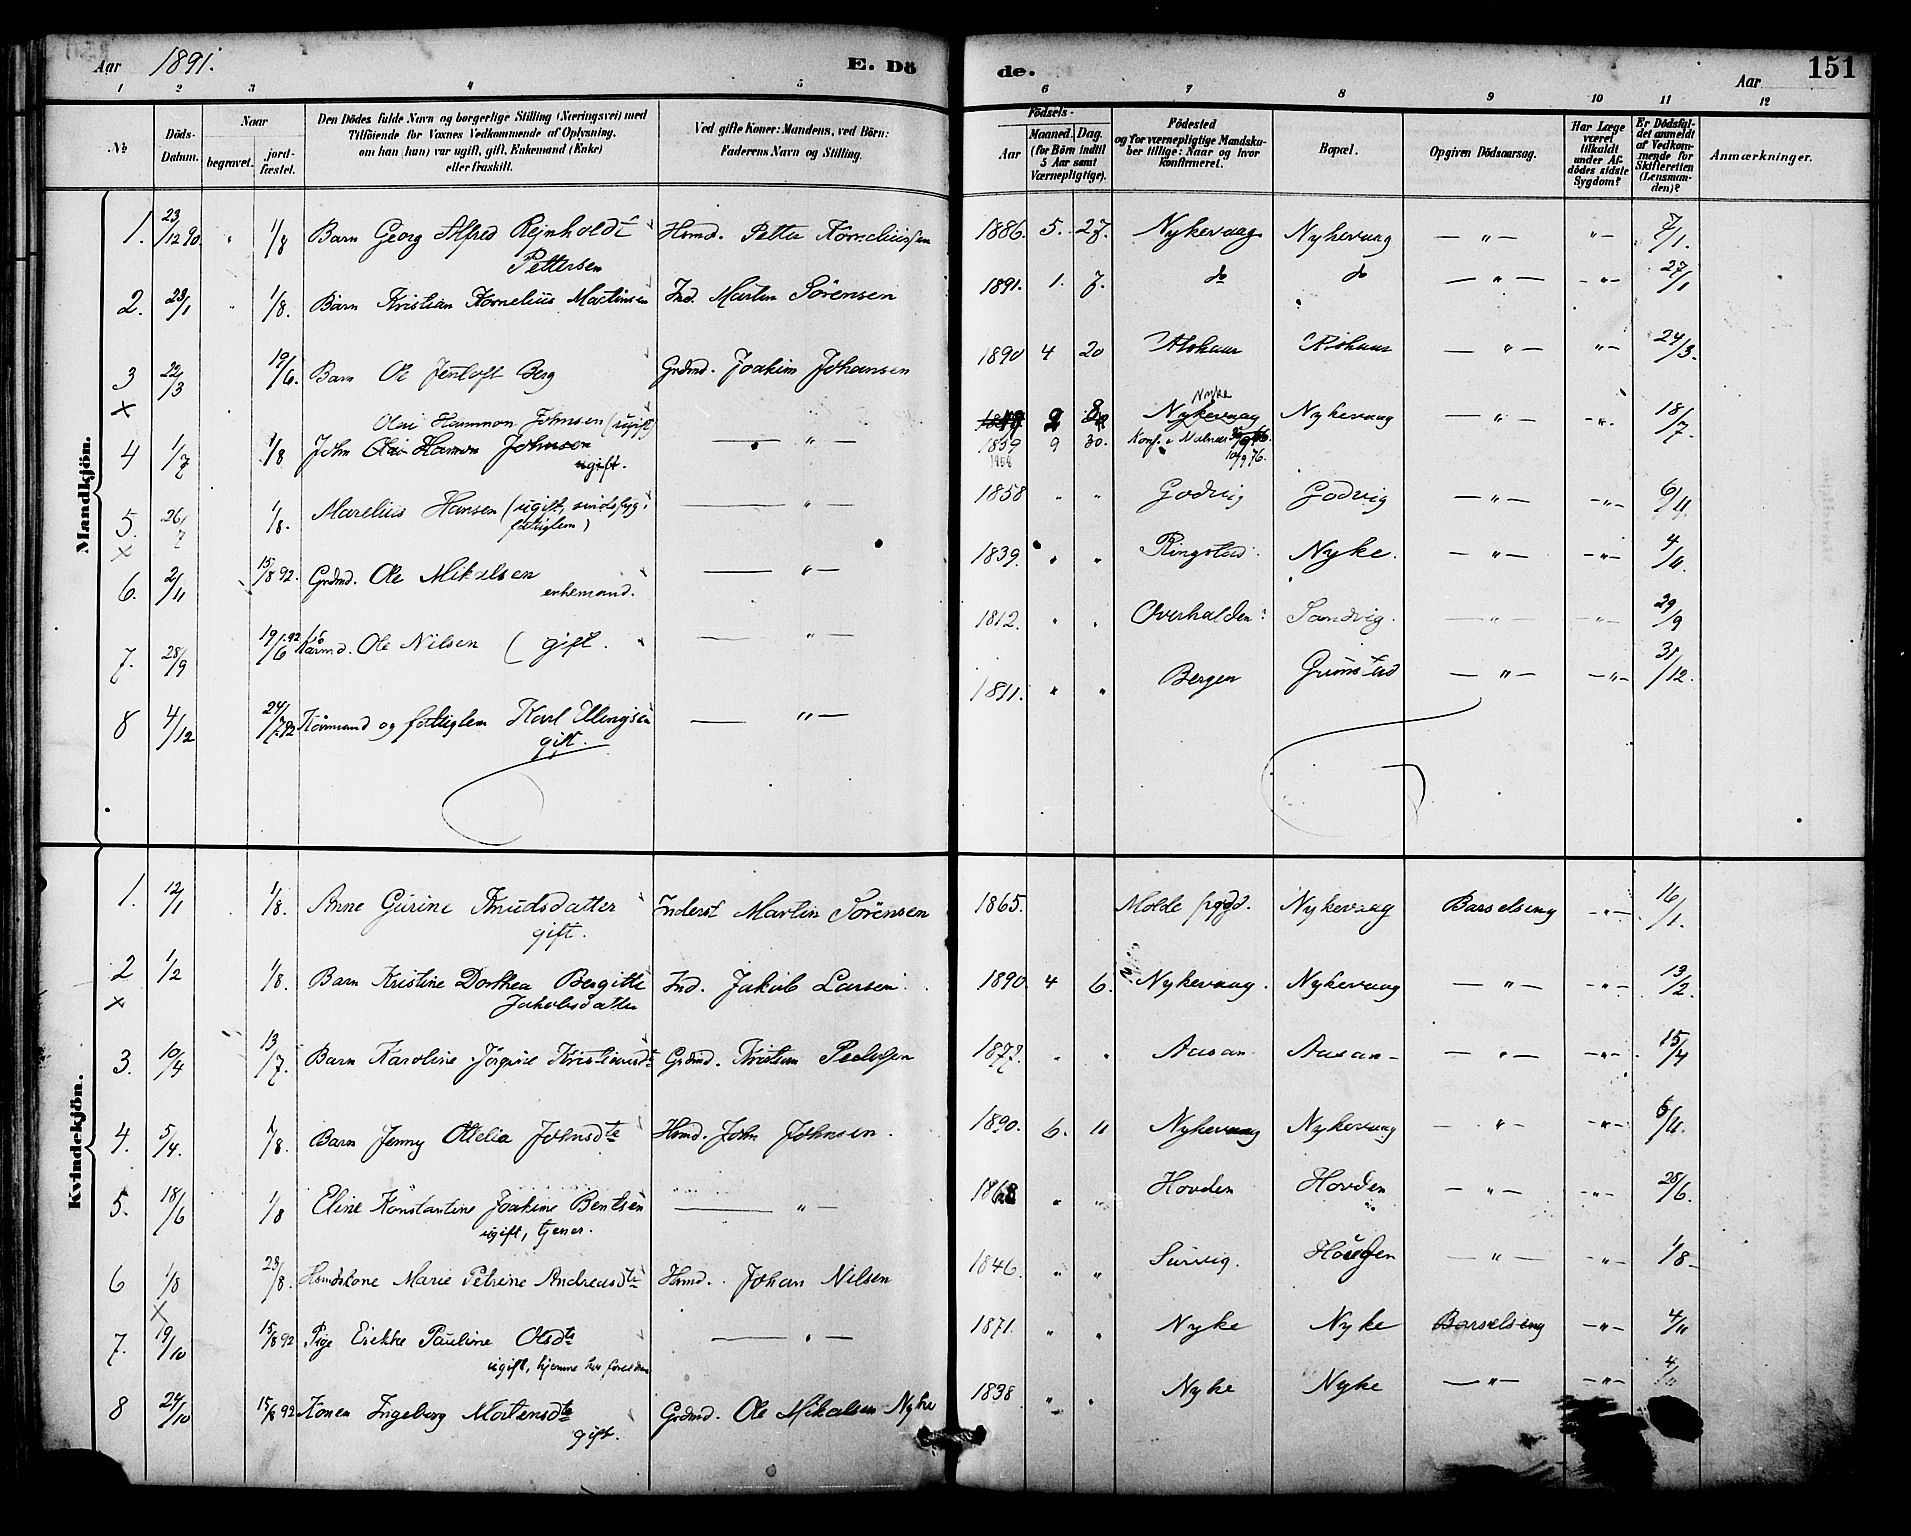 Aar 1891. E. Dö de. Aar 151
1 2 3 4 5 6 7 8 9 10 11 12
No Döds-Datum. Naar begravet. jord-fæstet. Den Dödes fulde Navn og borgerlige Stilling (Næringsvei) med Tilföiende for Voxnes Vedkommende af Oplysning, om han (hun) var ugift, gift, Enkemand (Enke) eller fraskilt. Ved gifte Koner: Mandens, ved Börn: Faderens Navn og Stilling. Födsels- Aar Maaned. Dag. (for Börn indtil 5 Aar samt Værnepligtige). Födested og for værnepligtige Mandska-ber tillige: Naar og hvor konfirmeret. Bopæl. Opgiven Dödsaarsag. Har Læge været tilkaldt under Af-dödes sidste Sygdom? Er Dödsfal-det anmeldt af Vedkom-mende for Skifteretten (Lensman-den)? Anmærkninger.
Mandkjön.
1. 23/12 90. " 1/8 Barn Georg Alfred Rejnholdt Hsmd. Petter Korneliussen 1886. 5. 27. Nykevaag Nykevaag — " — " 7/1.
Pettersen
2. 23/1 " 1/8. Barn Kristian Kornelius Martinsen Ind. Martin Sörensen 1891. 1. 7. do do — " — - " - 27/1
3 22/3 19/6. Barn Ole Jentoft Berg Grdmd. Joakim Johansen 1890 4 20 — " — " 24/3.
x Olai Hammon Johnsen (ugift) Nyke
4 1/7 1/8 John Olai Hamon Johnsen — " — Nykevaag Nykevaag — " — 18/7.
ugift. 1859 9 30. Konf. i Malnes 10/9 76.
5. 26/7 1/8. Marelius Hansen (ugift, sindssyg, — " — 1858 " " Godvig Godvig — " — - " - 6/4.
fattiglem)
x
6. 2/11 15/8 92. Grdmd. Ole Mikalsen — " — 1839. " " Ringstad Nyke. — " — - " - 4/11.
enkemand.
7. 28/9 19/6 92 Ole Nilsen (gift. — " — 1812. " " Overhalden Sandvig. — " — - " - 29/9
8 4/12 24/7 92 Kårmand og fattiglem Karl Ellingsen — " — 1811. " " Bergen Grimstad — " — - " - 31/12.
gift.
Kvindekjön.
1. 12/1 1/8. Anne Gurine Knudsdatter Inderst Martin Sörensen 1865. Molde prgjd. Nykevaag Barselseng - " - 16/1.
gift.
2 1/2 1/8. Barn Kristine Dorthea Bergitte Ind. Jakob Larsen 1890. 4 6. Nykevaag. Nykevaag — " — - " - 13/2.
x Jakobsdatter
3. 10/4 13/7. Barn Karoline Jörgine Kristiansdt Grdmd. Kristian Pedersen 1877. " " Aasan Aasan — " — - " - 15/4
4. 5/4. 1/8. Barn Jenny Otelia Johnsdtr Hsmd. John Johnsen. 1890. 6. 11 Nykevaag Nykevaag — " — - " - 6/4.
5. 18/6 1/8 Eline Konstantine Joakime Bentsen — " — 1868 " " Hovden Hovden — " — - " - 28/6.
ugift, tjener.
6 1/8 23/8. Hsmdskone Marie Petrine Andreasdtr Hsmd. Johan Nilsen 1846. " " Survig. Hovden — " — - " - 1/8
x
7. 19/10 15/8 92 Pige Erikke Pauline Olsdtr — " — 1871. " " Nyke Nyke Barselseng - " - 4/11
ugift, hjemme hos forældrene
8 24/10 15/8 92 Konen Ingeborg Mortensdtr Grdmd. Ole Mikalsen Nyke 1838 " " Nyke Nyke — " — - " - 4/11
gift.